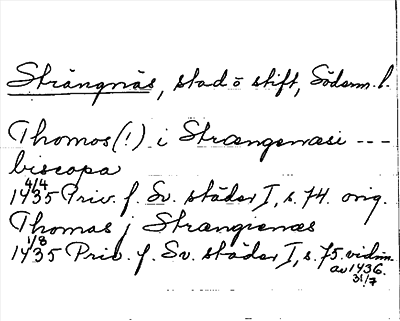 Strängnäs, stad o stift, Söderm. l.
Thomos (!) i Strængenæsi ---
biscopa
4/4
1435 Priv. f. Sv. städer I, s. 74. orig.
Thomas j Strængienæs
1/8
1435 Priv. f. Sv. städer I, s. 75. vidim.
av 1436.
31/7